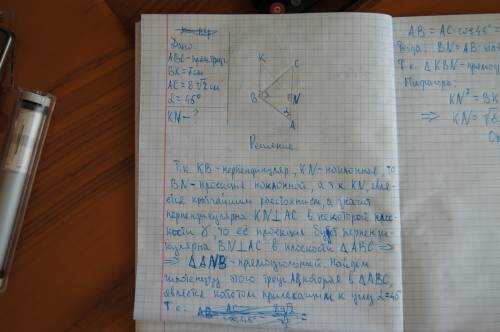 Дано
ABC - прям. треуг.
BK = 7 см
AC = 8√2 см
∠ = 45°
KN - ?
K
C
B
N
A
Решение
Т.к. KB - перпендикуляр, KN - наклонная, то
BN - проекция наклонной, а т.к. KN явля-
ется кратчайшим расстоянием, а значит
перпендикулярна KN⊥AC в некоторой плос-
кости γ, то её проекция будет перпенди-
кулярна BN⊥AC в плоскости ΔABC ⇒
⇒ ΔANB - прямоугольный. Найдем
гипотенузу этого треуг. AB, которая в ΔABC,
является катетом прилежащим к углу ∠=45°
Т.е.:
AB = AC · cos 45° =
Тогда: BN = AB · sin
Т.к. ΔKBN - прямоу
Пифагора:
KN² = BK
⇒ KN = √8